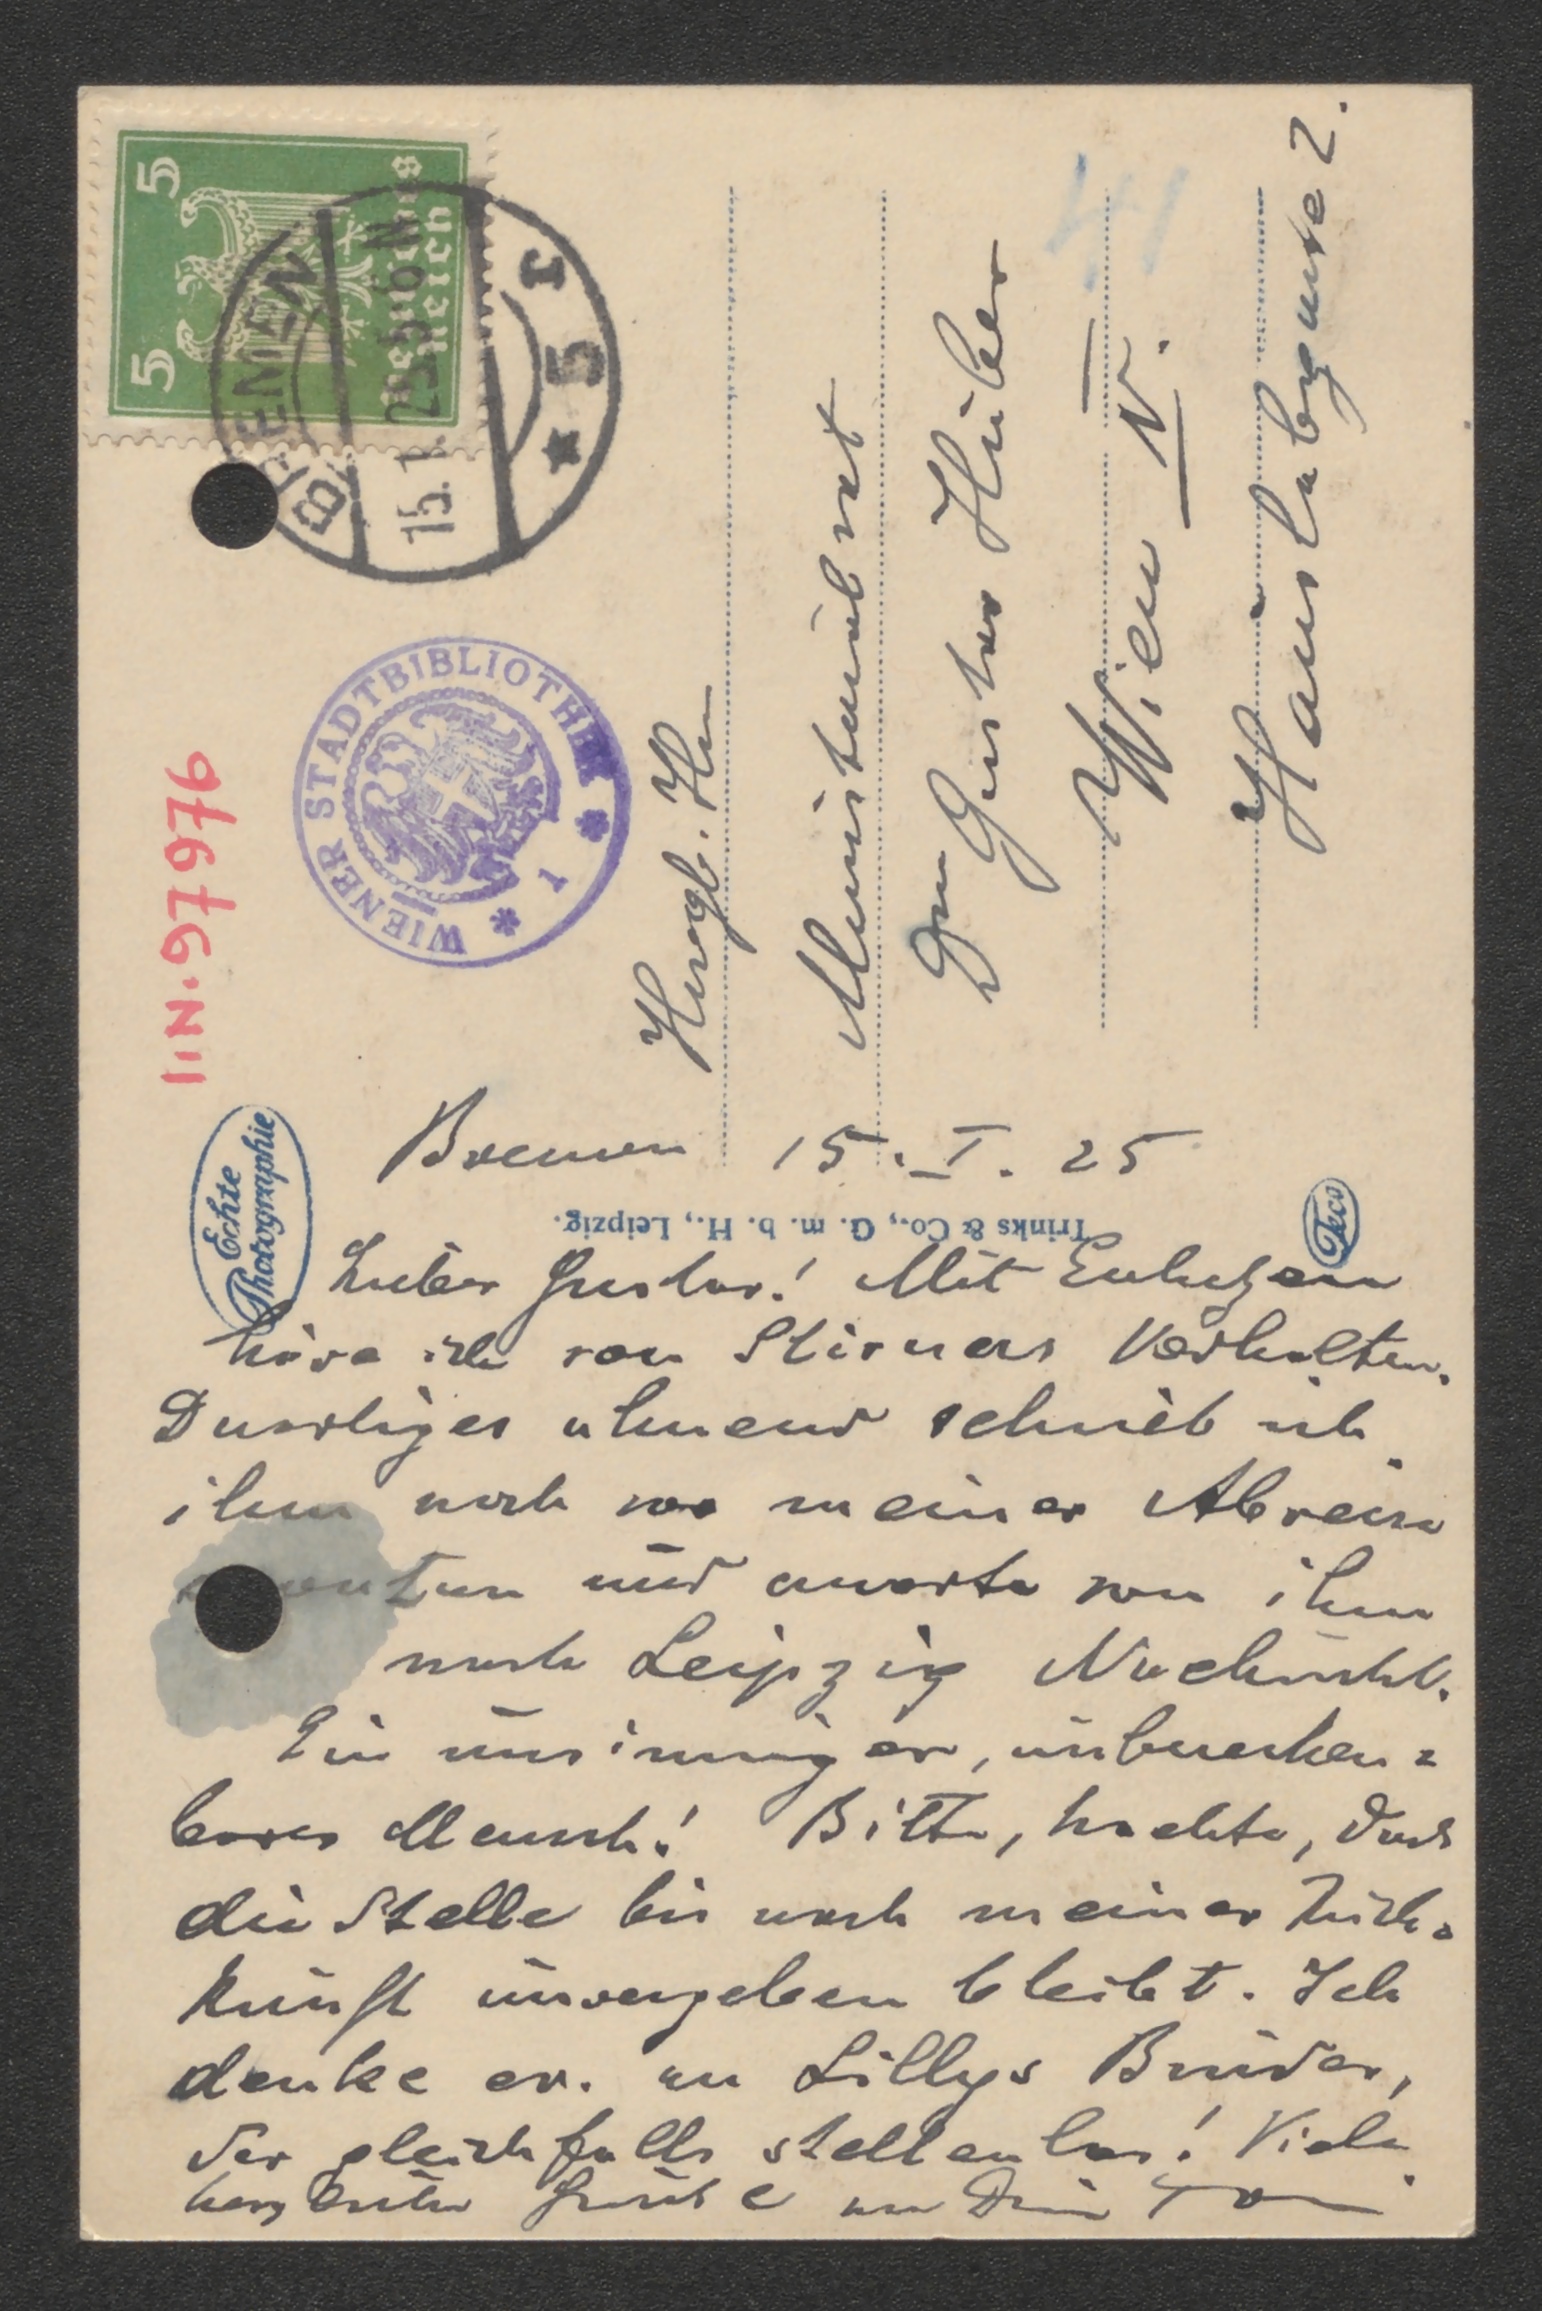 5 5
Deutsches
Reich
BREMEN
15.1.25 6-N
* 5 r
WIENER STADTBIBLIOTHEK * 1 *
I.N. 97976
Echte
Photographie
Herrn
Ministerialrat
Gustav Huber
Wien IV.
Hauslabgasse 2.
Bremen 15.I.25
Trinks & Co., G. m. b. H., Leipzig.
Teco
Lieber Gustav! Mit Entsetzen
höre ich von Stirners Verhalten.
Derartiges ahnend schrieb ich
ihm noch vor meiner Abreise
und erwarte von ihm
nach Leipzig Nachricht.
Ein unsinniger, unberechen=
barer Mensch! Bitte, trachte, dass
die Stelle bis nach meiner Rück=
kunft unvergeben bleibt. Ich
denke ev. an Lillys Bruder,
der gleichfalls stellenlos! Viele
herzliche Grüsse von Dein Toni